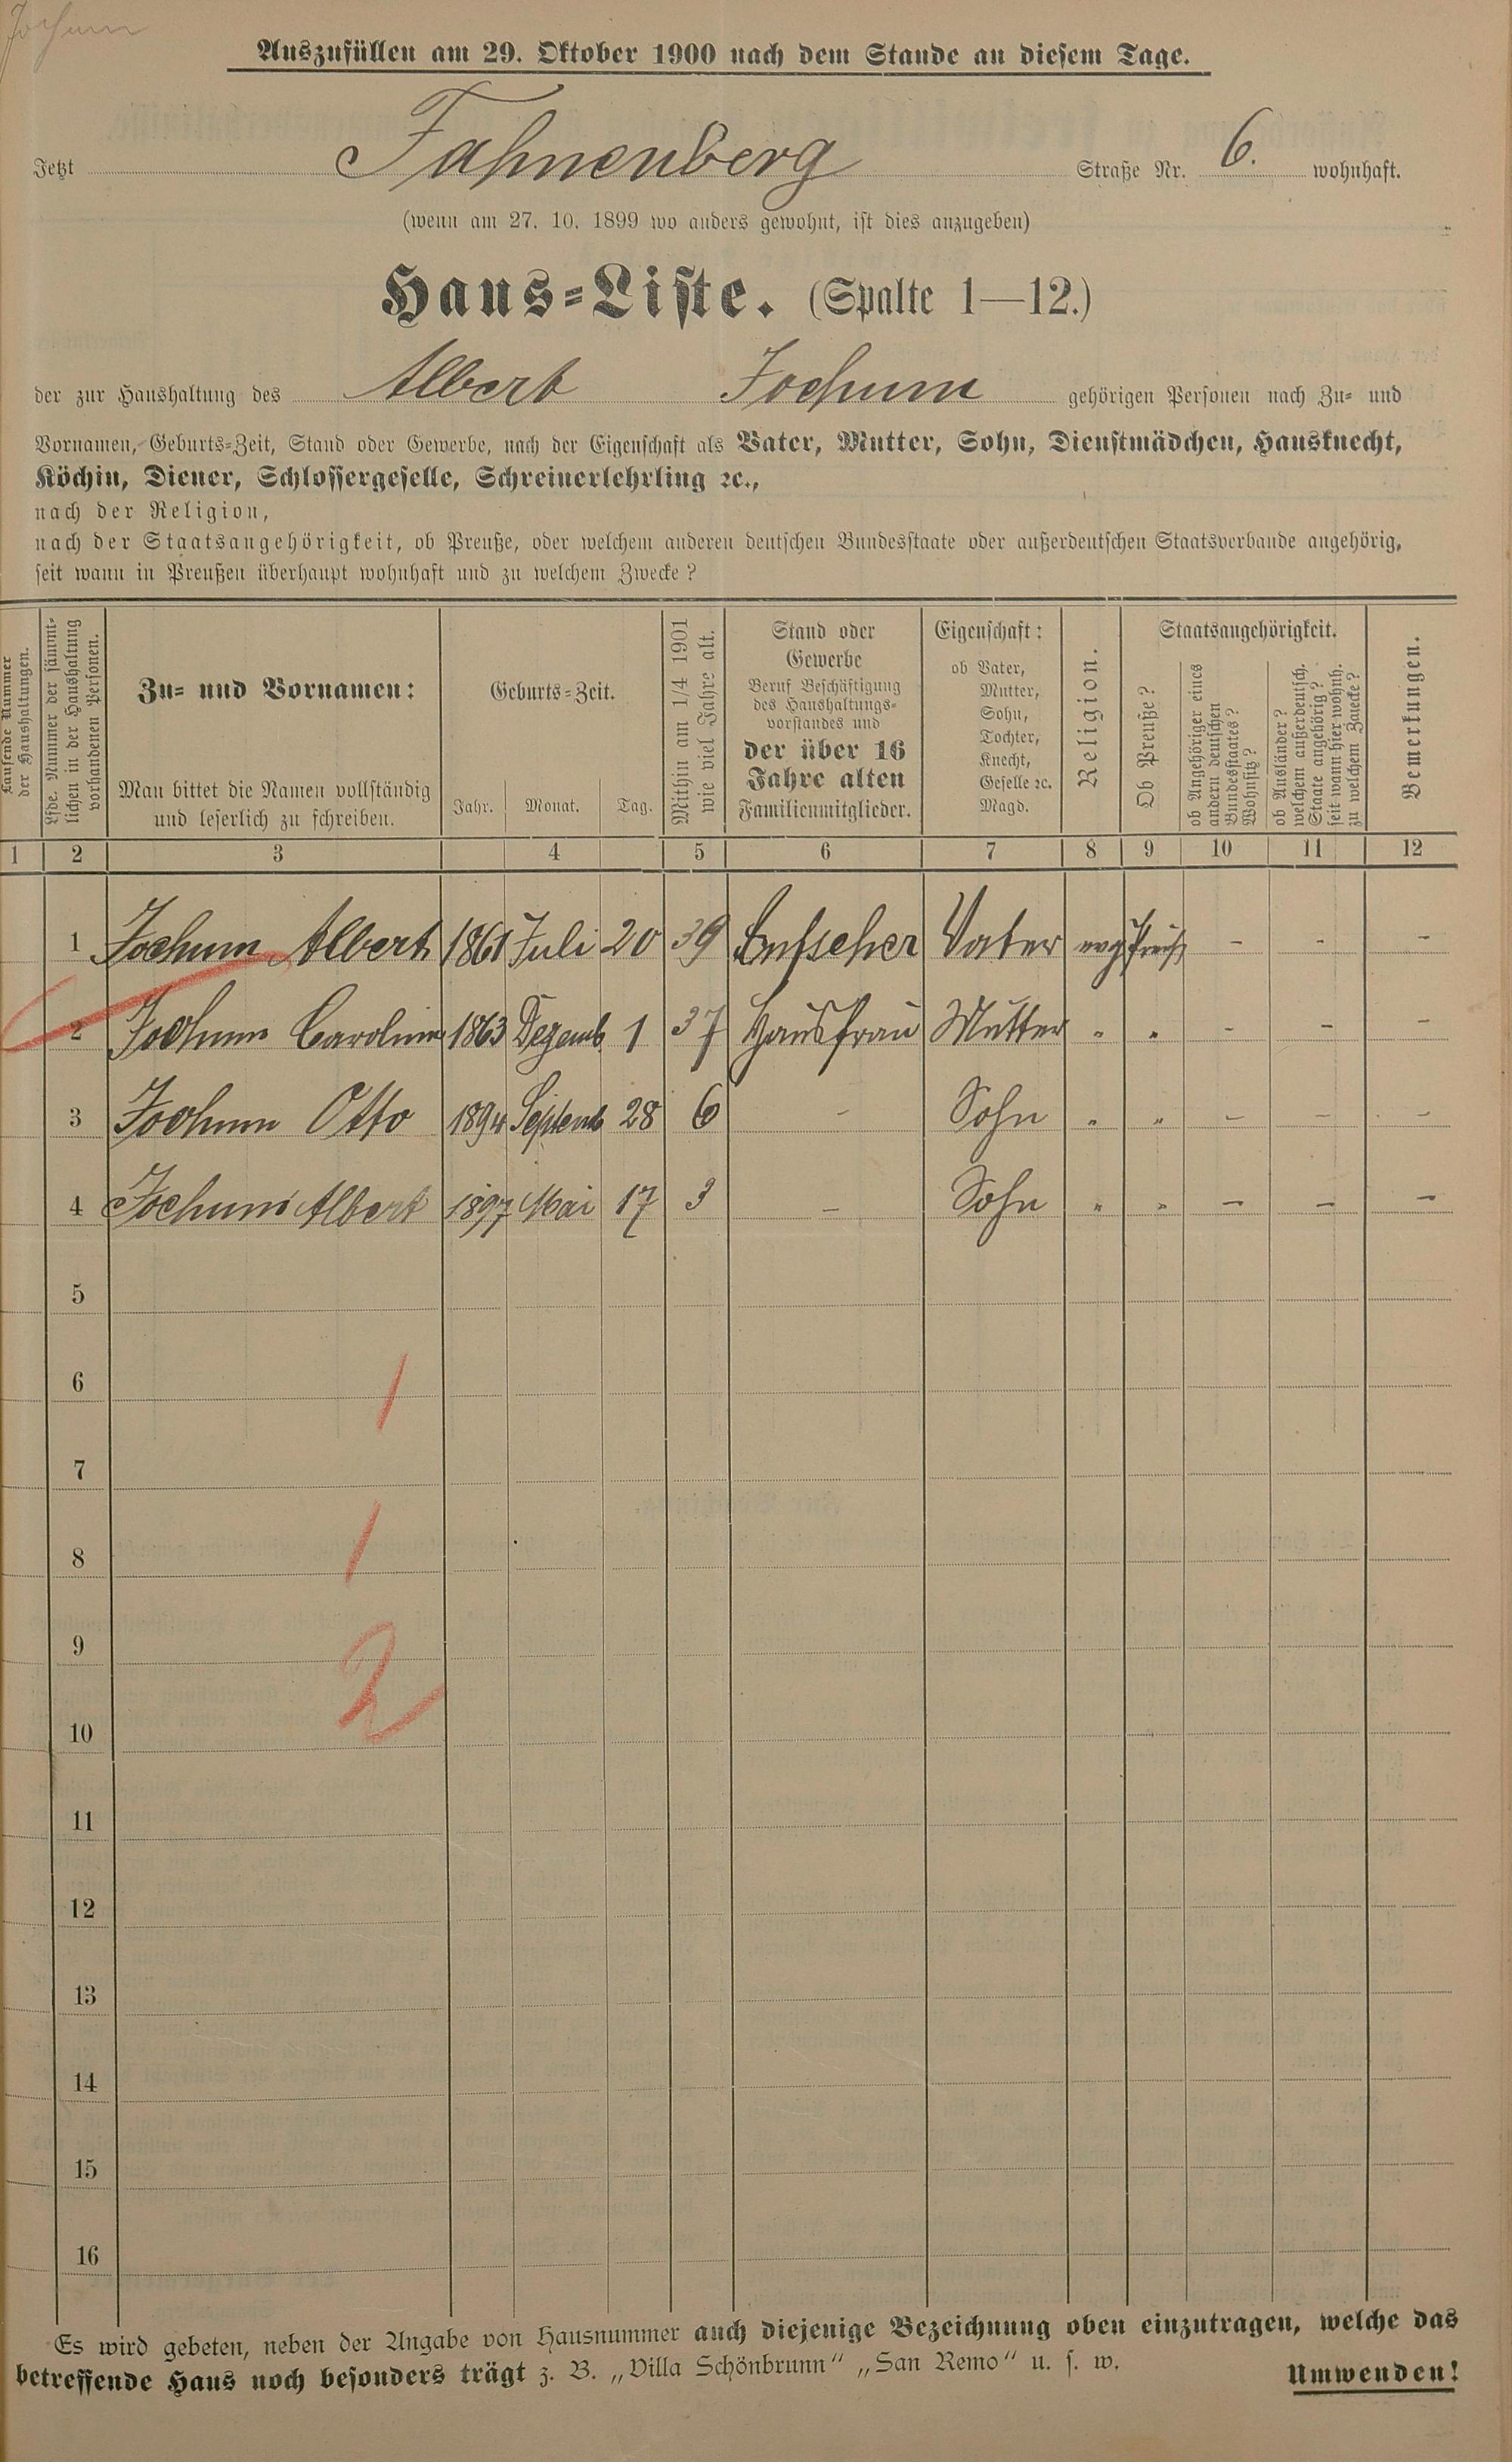 Jochum
Auszufüllen am 29. Oktober 1900 nach dem Stande an diesem Tage.
Jetzt Fahnenberg Straße Nr. 6. wohnhaft.
(wenn am 27. 10. 1899 wo anders gewohnt, ist dies anzugeben)
Haus-Liste. (Spalte 1—12.)
der zur Haushaltung des Albert Jochum gehörigen Personen nach Zu- und
Vornamen, Geburts-Zeit, Stand oder Gewerbe, nach der Eigenschaft als Vater, Mutter, Sohn, Dienstmädchen, Hausknecht,
Köchin, Diener, Schlossergeselle, Schreinerlehrling ꝛc.,
nach der Religion,
nach der Staatsangehörigkeit, ob Preuße, oder welchem anderen deutschen Bundesstaate oder außerdeutschen Staatsverbande angehörig,
seit wann in Preußen überhaupt wohnhaft und zu welchem Zwecke?
Laufende Nummer
der Haushaltungen.
Lfde. Nummer der sämmt-
lichen in der Haushaltung
vorhandenen Personen.
Zu- und Vornamen:
Man bittet die Namen vollständig
und leserlich zu schreiben.
Geburts-Zeit.
Jahr. Monat. Tag.
Mithin am 1/4 1901
wie viel Jahre alt.
Stand oder
Gewerbe
Beruf Beschäftigung
des Haushaltungs-
vorstandes und
der über 16
Jahre alten
Familienmitglieder.
Eigenschaft:
ob Vater,
Mutter,
Sohn,
Tochter,
Knecht,
Geselle ꝛc.
Magd.
Religion.
Staatsangehörigkeit.
Ob Preuße?
ob Angehöriger eines
andern deutschen
Bundesstaates?
Wohnsitz?
ob Ausländer?
welchem außerdeutsch.
Staate angehörig?
seit wann hier wohnh.
zu welchem Zwecke?
Bemerkungen.
1 2 3 4 5 6 7 8 9 10 11 12
1 Jochum Albert 1861 Juli 20 39 Kutscher Vater evg Preuß - - -
2 Jochum Caroline 1863 Dezemb. 1 37 Hausfrau Mutter " " - - -
3 Jochum Otto 1894 Septemb 28 6 - Sohn " " - - -
4 Jochum Albert 1897 Mai 17 3 - Sohn " " - - -
5
6
1
7
8
1
9
2
10
11
12
13
14
15
16
Es wird gebeten, neben der Angabe von Hausnummer auch diejenige Bezeichnung oben einzutragen, welche das
betreffende Haus noch besonders trägt z. B. „Villa Schönbrunn“ „San Remo“ u. s. w.
Umwenden!